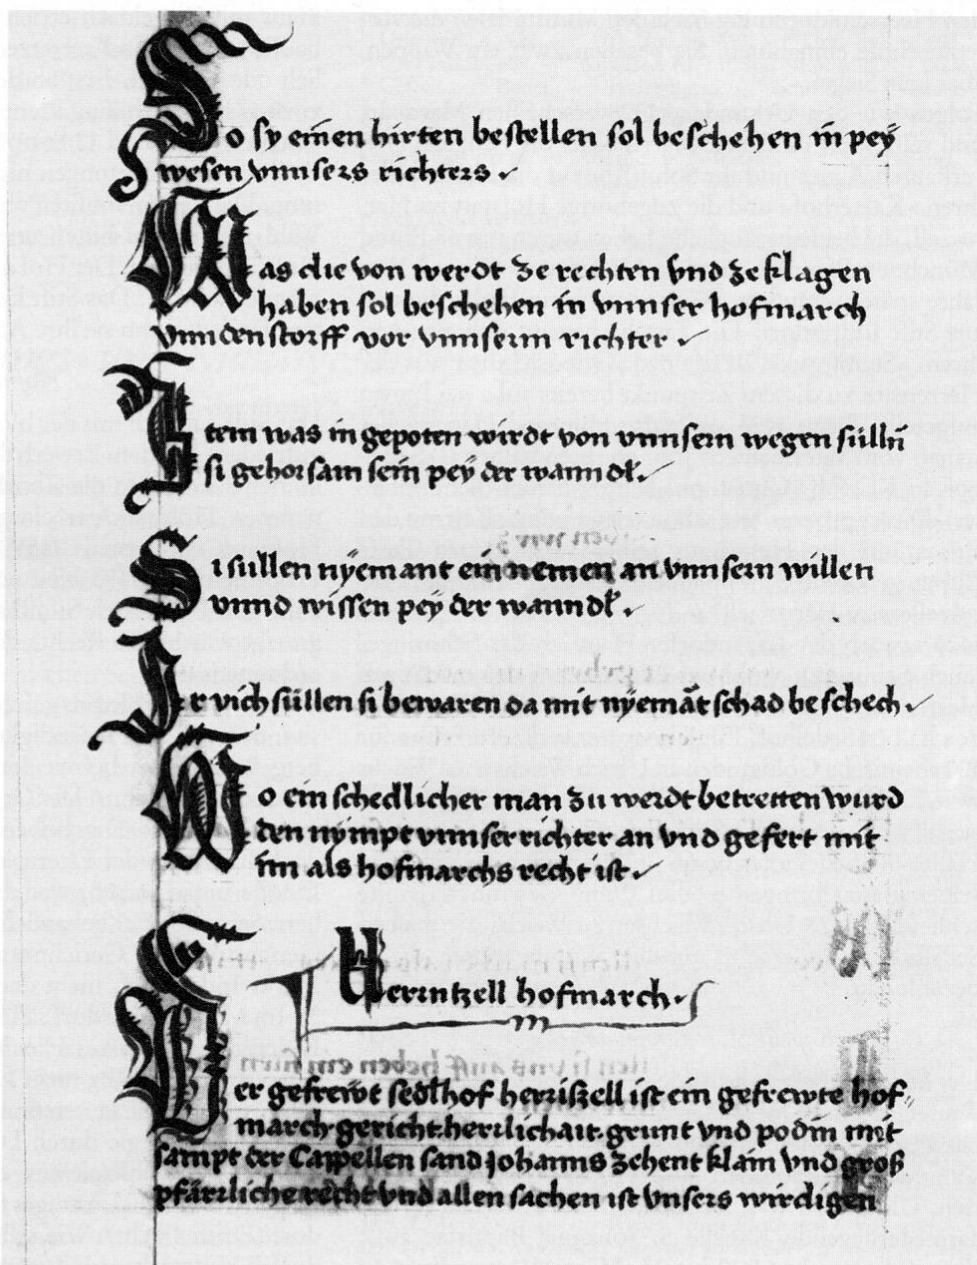 So sy einen hirten bestellen sol beschehen in pey
wesen vnnsers richters
Was die von werdt ze rechten vnd ze klagen
haben sol beschehen in vnnser hofmarch
vnndenstorff vor vnnserm richter
Item was in gepoten wirdt von vnnsern wegen sülln̄
si gehorsam sein peÿ der wanndl̄
Si süllen nÿemant einnemen an vnnsern willen
vnnd wissen peÿ der wanndl̄
Ir vich süllen si bewaren da mit nÿemāt schad beschech
Wo ein schedlicher man zu werdt betretten wurd
den nÿmpt vnnser richter an vnd gefert mit
im als hofmarchs recht ist
Herrntzell hofmarch
Der gefrewt sedlhof herrıszell ist ein gefrewte hof
march gericht herrlichait grunt vnd podm mit
sampt der Cappellen sand Johanns zehent klain vnd groß
pfärrliche recht vnd allen sachen ist vnsers wirdigen